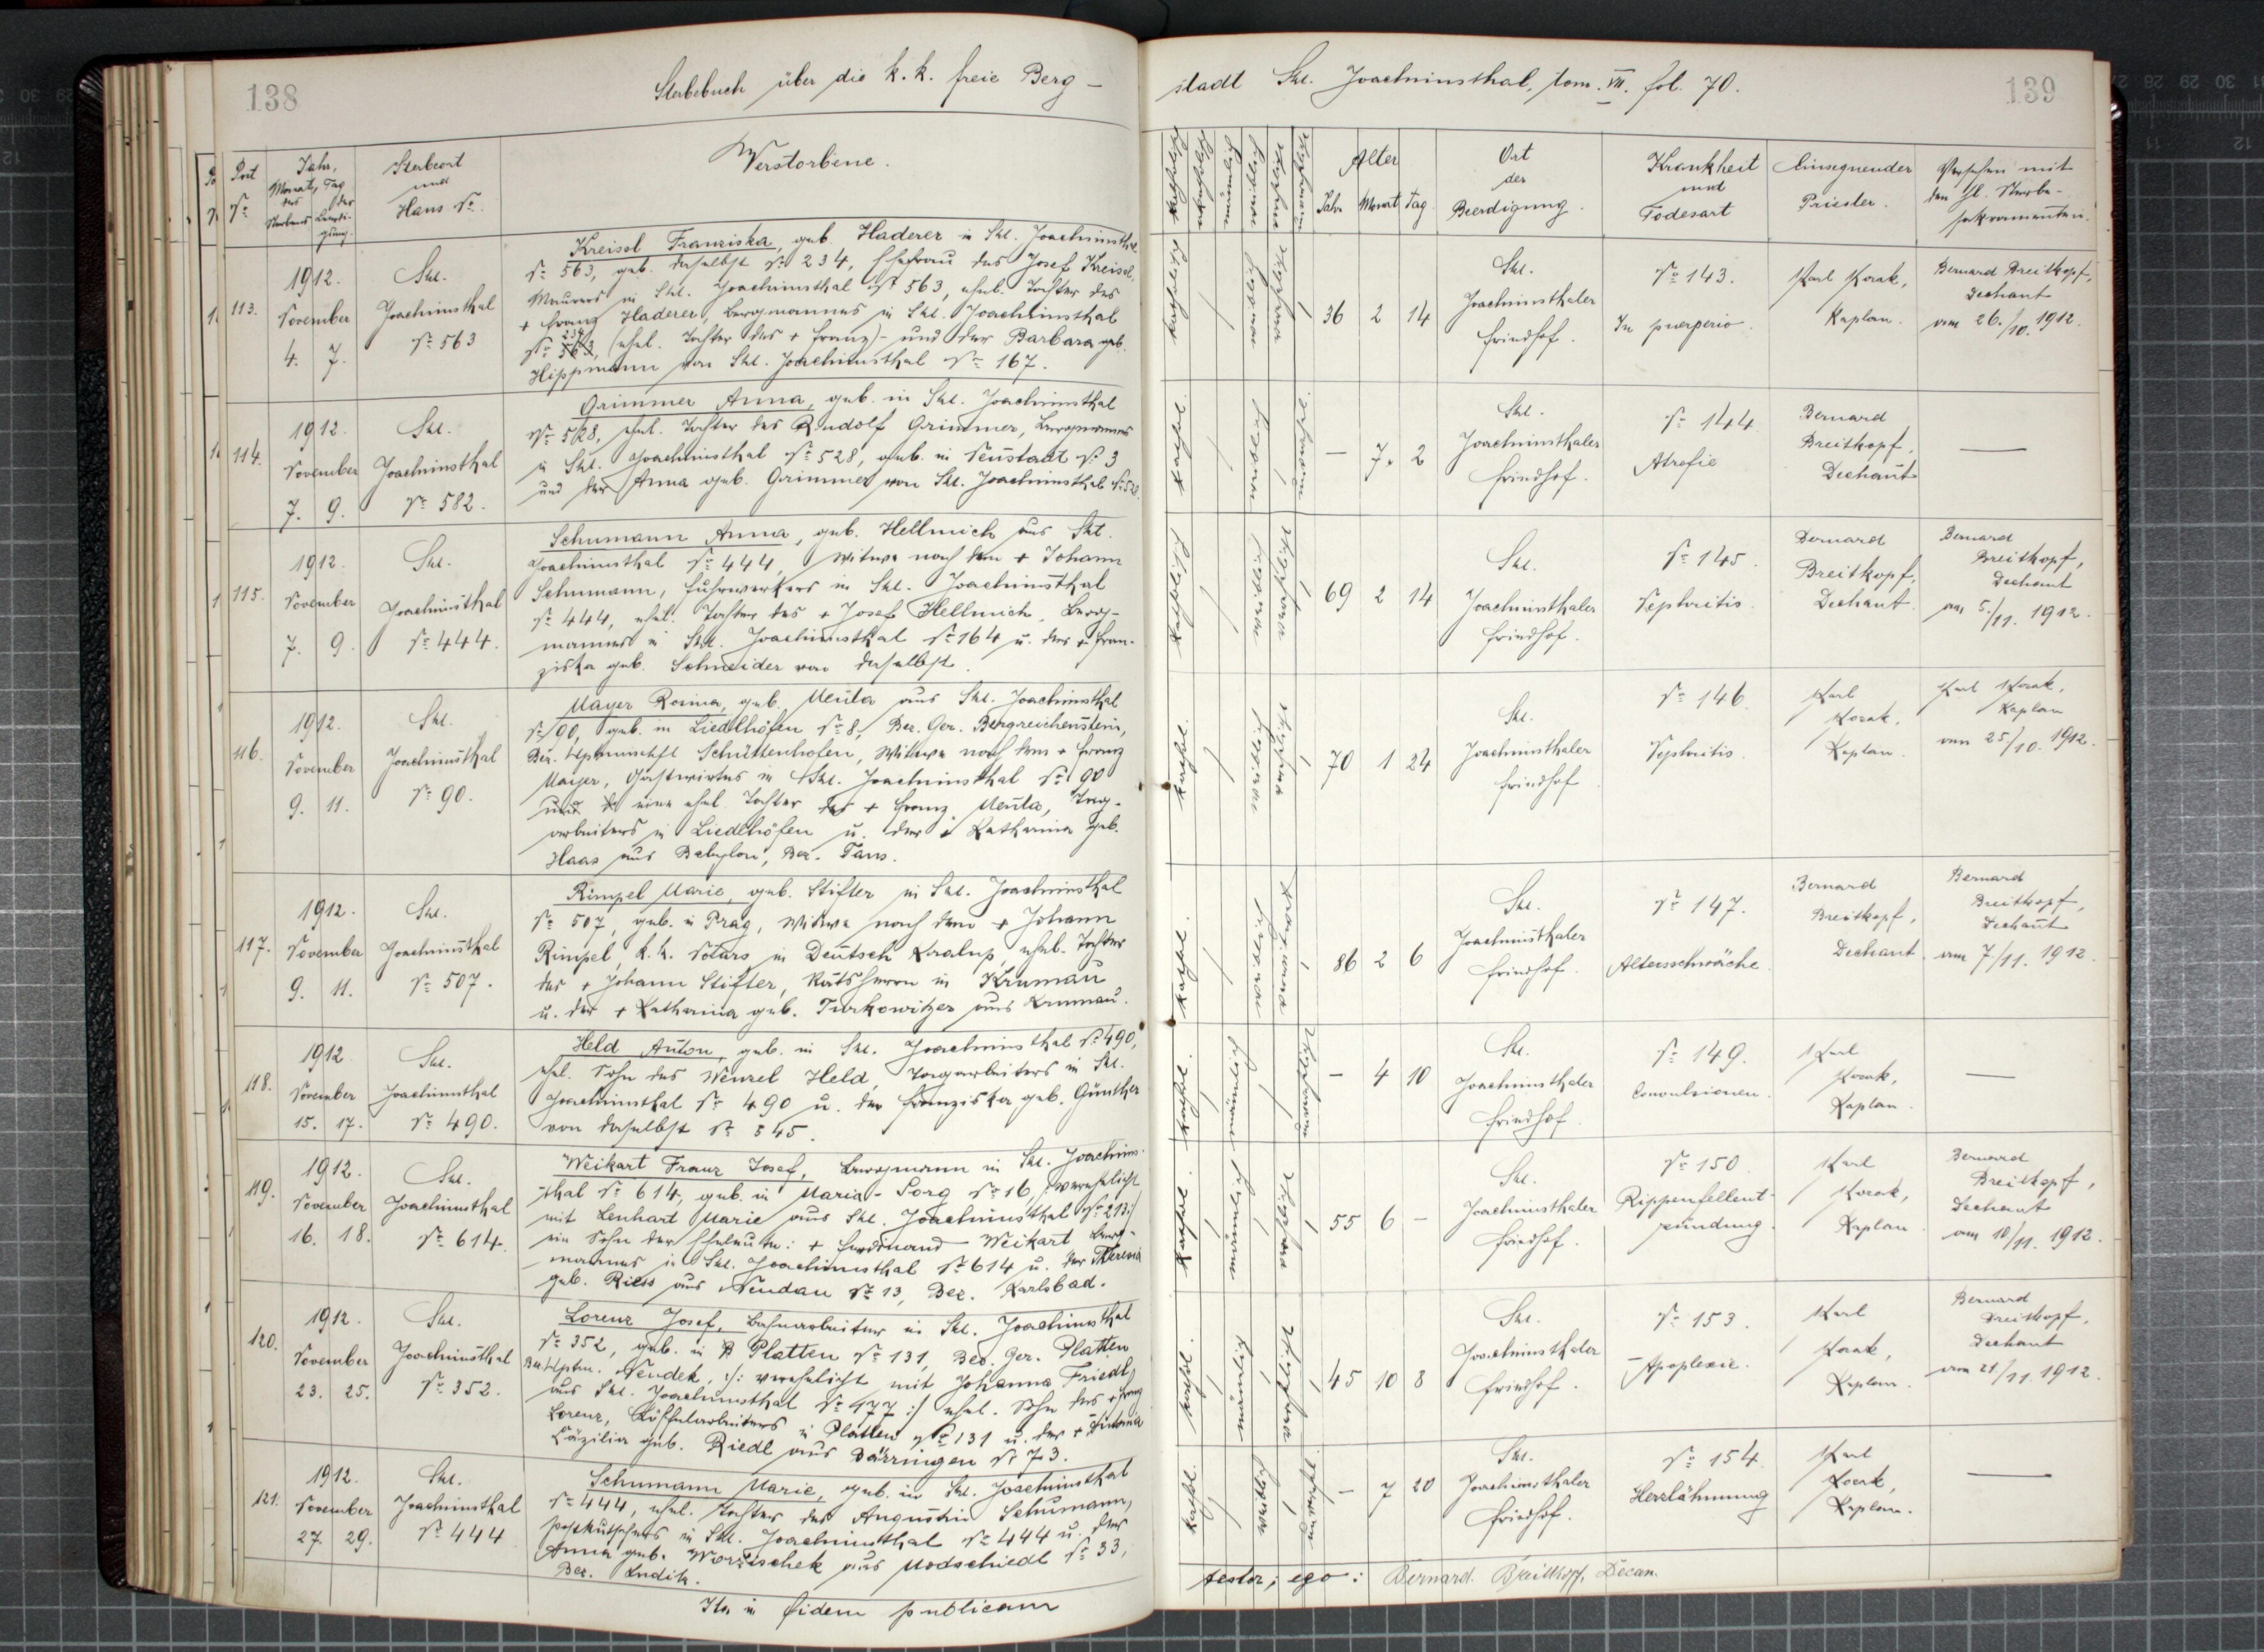 138
Sterbebuch über die k. k. freie Berg-
Post
Nr.
Jahr,
Monat, Tag
des Sterbens
der Beerdigung.
Sterbeort
und
Haus Nr.
Verstorbene.
113.
1912.
November
4. 7.
Skt.
Joachimsthal
Nr. 563
Kreissl Franziska, geb. Haderer in Skt. Joachimsthal
Nr. 563, geb. daselbst Nr. 234, Ehefrau des Josef Kreissl,
Maurers in Skt. Joachimsthal Nr. 563, ehel. Tochter des
+ Franz Haderer, Bergmannes in Skt. Joachimsthal
Nr. 563, (ehel. Tochter des + Franz) - und der Barbara geb.
Hippmann von Skt. Joachimsthal Nr. 167.
114.
1912.
November
7. 9.
Skt.
Joachimsthal
Nr. 582.
Grimmer Anna, geb. in Skt. Joachimsthal
Nr. 528, ehel. Tochter des Rudolf Grimmer, Bergmannes
in Skt. Joachimsthal Nr. 528, geb. in Neustadt Nr. 3
und der Anna geb. Grimmer von Skt. Joachimsthal Nr. 528.
115.
1912.
November
7. 9.
Skt.
Joachimsthal
Nr. 444.
Schumann Anna, geb. Hellmich aus Skt.
Joachimsthal Nr. 444, Witwe nach dem + Johann
Schumann, Fuhrwerkers in Skt. Joachimsthal
Nr. 444, ehel. Tochter des + Josef Hellmich, Berg-
mannes in Skt. Joachimsthal Nr. 164 u. der + Fran-
ziska geb. Schneider von daselbst.
116.
1912.
November
9. 11.
Skt.
Joachimsthal
Nr. 90.
Mayer Rosina, geb. Meula aus Skt. Joachimsthal
Nr. 90, geb. in Liedlhöfen Nr. 8, Bez. Ger. Bergreichenstein,
Bez. Hptmschft Schüttenhofen, Witwe nach dem + Franz
Mayer, Gastwirtes in Skt. Joachimsthal Nr. 90
und eine ehel. Tochter des + Franz Meula, Tag-
arbeiters in Liedlhöfen u. der + Katharina geb.
Haas aus Babylon, Bez. Taus.
117.
1912.
November
9. 11.
Skt.
Joachimsthal
Nr. 507.
Rimpel Marie, geb. Stifter in Skt. Joachimsthal
Nr. 507, geb. in Prag, Witwe nach dem + Johann
Rimpel, k. k. Notars in Deutsch Kralup, ehel. Tochter
des + Johann Stifter, Ratsherrn in Krumau
u. der + Katharina geb. Turkowitzer aus Krumau.
118.
1912
November
15. 17.
Skt.
Joachimsthal
Nr. 490.
Held Anton, geb. in Skt. Joachimsthal Nr. 490,
ehel. Sohn des Wenzel Held, Tagarbeiters in Skt.
Joachimsthal Nr. 490 u. der Franziska geb. Günther
von daselbst Nr. 545.
119.
1912.
November
16. 18.
Skt.
Joachimsthal
Nr. 614.
Weikart Franz Josef, Bergmann in Skt. Joachims-
thal Nr. 614, geb. in Maria-Sorg Nr. 16, /: verehelicht
mit Lenhart Marie aus Skt. Joachimsthal Nr. 213 :/
ein Sohn der Eheleute: + Ferdinand Weikart Berg-
mannes in Skt. Joachimsthal Nr. 614 u. der Theresia
geb. Riess aus Neudau Nr. 13, Bez. Karlsbad.
120.
1912.
November
23. 25.
Skt.
Joachimsthal
Nr. 352.
Lorenz Josef, Bahnarbeiter in Skt. Joachimsthal
Nr. 352, geb. in Platten Nr. 131, Bez. Ger. Platten
Bez. Hptm. Neudek, /: verehelicht mit Johanna Friedl
aus Skt. Joachimsthal Nr. 477 :/ ehel. Sohn des + Franz
Lorenz, Löffelarbeiters in Platten Nr. 131 u. der + Antonia
Läzilia geb. Riedl aus Bärringen Nr. 73.
121.
1912.
November
27. 29.
Skt.
Joachimsthal
Nr. 444
Schumann Marie, geb. in Skt. Joachimsthal
Nr. 444, ehel. Tochter des Augustin Schumann,
Postkutschers in Skt. Joachimsthal Nr. 444 u. der
Anna geb. Worzischek aus Modschiedl Nr. 33,
Bez. Luditz.
Ita in fidem publicam
stadt Skt. Joachimsthal, tom. VII. fol. 70.
139
Alter
Jahr Monat Tag
Ort
der
Beerdigung.
Krankheit
und
Todesart
Einsegnender
Priester.
Versehen mit
den hl. Sterbe-
sakramenten.
katholisch
36 2 14
Skt.
Joachimsthaler
Friedhof.
Nr. 143.
In puerperio.
Karl Korak,
Kaplan.
Bernard Breitkopf,
Dechant
am 26./10. 1912.
kathol.
— 7. 2
Skt.
Joachimsthaler
Friedhof.
Nr. 144
Atrofie
Bernard
Breitkopf,
Dechant
—
katholisch
69 2 14
Skt.
Joachimsthaler
Friedhof.
Nr. 145.
Nephritis.
Bernard
Breitkopf,
Dechant.
Bernard
Breitkopf,
Dechant
am 5./11. 1912.
kathol.
70 1 24
Skt.
Joachimsthaler
Friedhof
Nr. 146
Nephritis.
Karl
Korak,
Kaplan.
Karl Korak,
Kaplan
am 25/10. 1912.
kathol.
86 2 6
Skt.
Joachimsthaler
Friedhof.
Nr. 147.
Altersschwäche.
Bernard
Breitkopf,
Dechant.
Bernard
Breitkopf,
Dechant
am 7/11. 1912.
kathol.
männlich
— 4 10
Skt.
Joachimsthaler
Friedhof.
Nr. 149.
Convulsionen.
Karl
Korak,
Kaplan.
—
kathol.
männlich
55 6 —
Skt.
Joachimsthaler
Friedhof.
Nr. 150
Rippenfellent-
zündung.
Karl
Korak,
Kaplan
Bernard
Breitkopf,
Dechant
am 10/11. 1912.
kathol.
männlich
45 10 8
Skt.
Joachimsthaler
Friedhof.
Nr. 153.
Apoplexie.
Karl
Korak,
Kaplan.
Bernard
Breitkopf,
Dechant
am 21/11. 1912.
kathol.
— 7 20
Skt.
Joachimsthaler
Friedhof.
Nr. 154
Herzlähmung
Karl
Korak,
Kaplan.
—
testor; ego: Bernard Breitkopf, Decan.